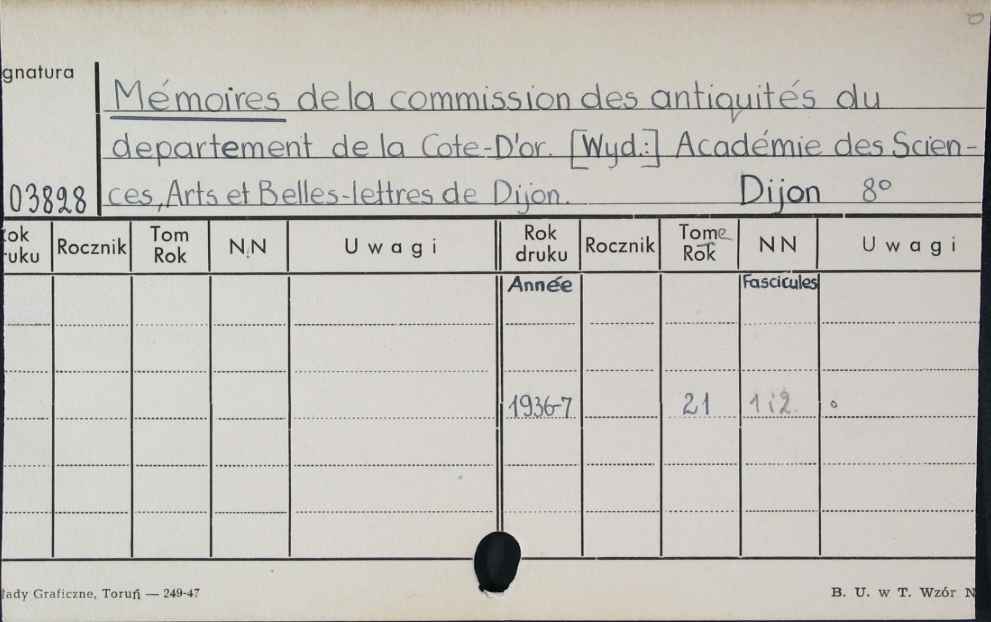 gnatura
Mémoires de la commission des antiquités du
departement de la Cote-D'or. [Wyd.:] Académie des Scien-
03828 ces, Arts et Belles-lettres de Dijon. Dijon 8°
ok uku Rocznik Tom Rok N.N Uwagi Rok druku Rocznik Tome Rok NN Uwagi
Année Fascicules
1936-7 21 1 i 2.
łady Graficzne, Toruń — 249-47 B. U. w T. Wzór N